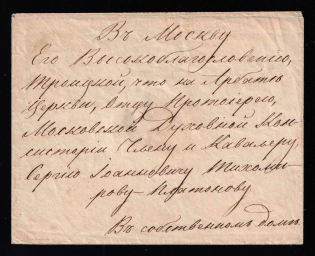 Въ Москву
Его Высокоблагословенію,
Троицкой, что на Арбатѣ
Церкви, Отцу Протоіерею,
Московской Духовной Кон-
систоріи Члену и Кавалеру,
Сергію Іоанновичу Тихоми-
рову-Платонову
Въ собственномъ домѣ.